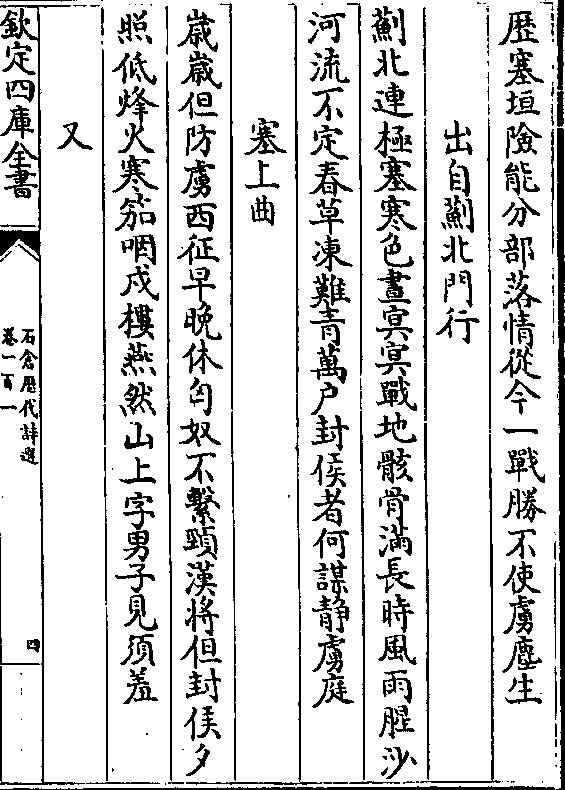 歴塞垣險能分部落情從今一戰勝不使虜塵生
出自薊北門行
薊北連極塞塞色晝冥冥戰地骸骨滿長時風雨腥沙
河流不定春草凍難青萬户封侯者何謀静虜庭
塞上曲
歳歳但防虜西征早晚休匈奴不繫頸漢將但封侯夕
照低烽火寒笳咽戍樓燕然山上字男子見須羞
又
欽定四庫全書
石倉歴代詩選
卷一百一
四